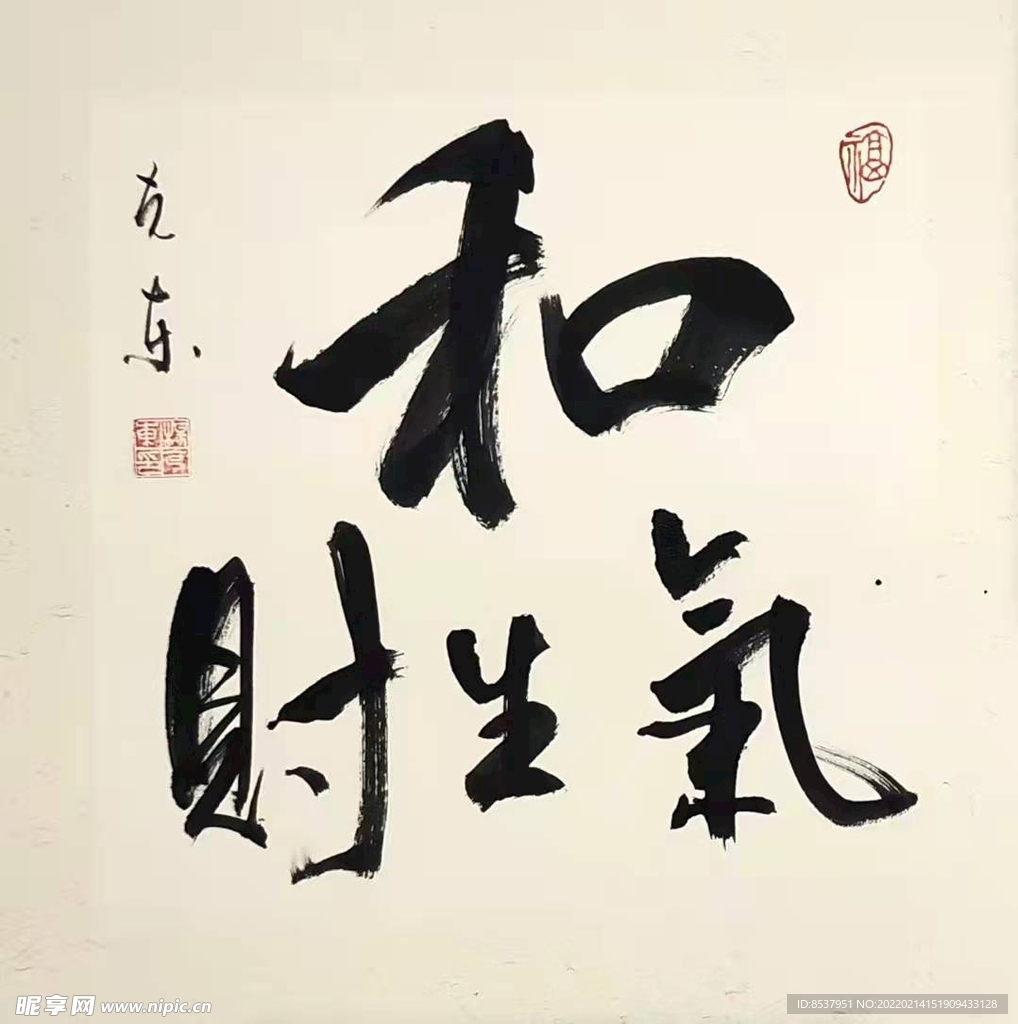 和
氣生財
克東
福
昵享网 www.nipic.cn
ID:8537951 NO:20220214151909433128